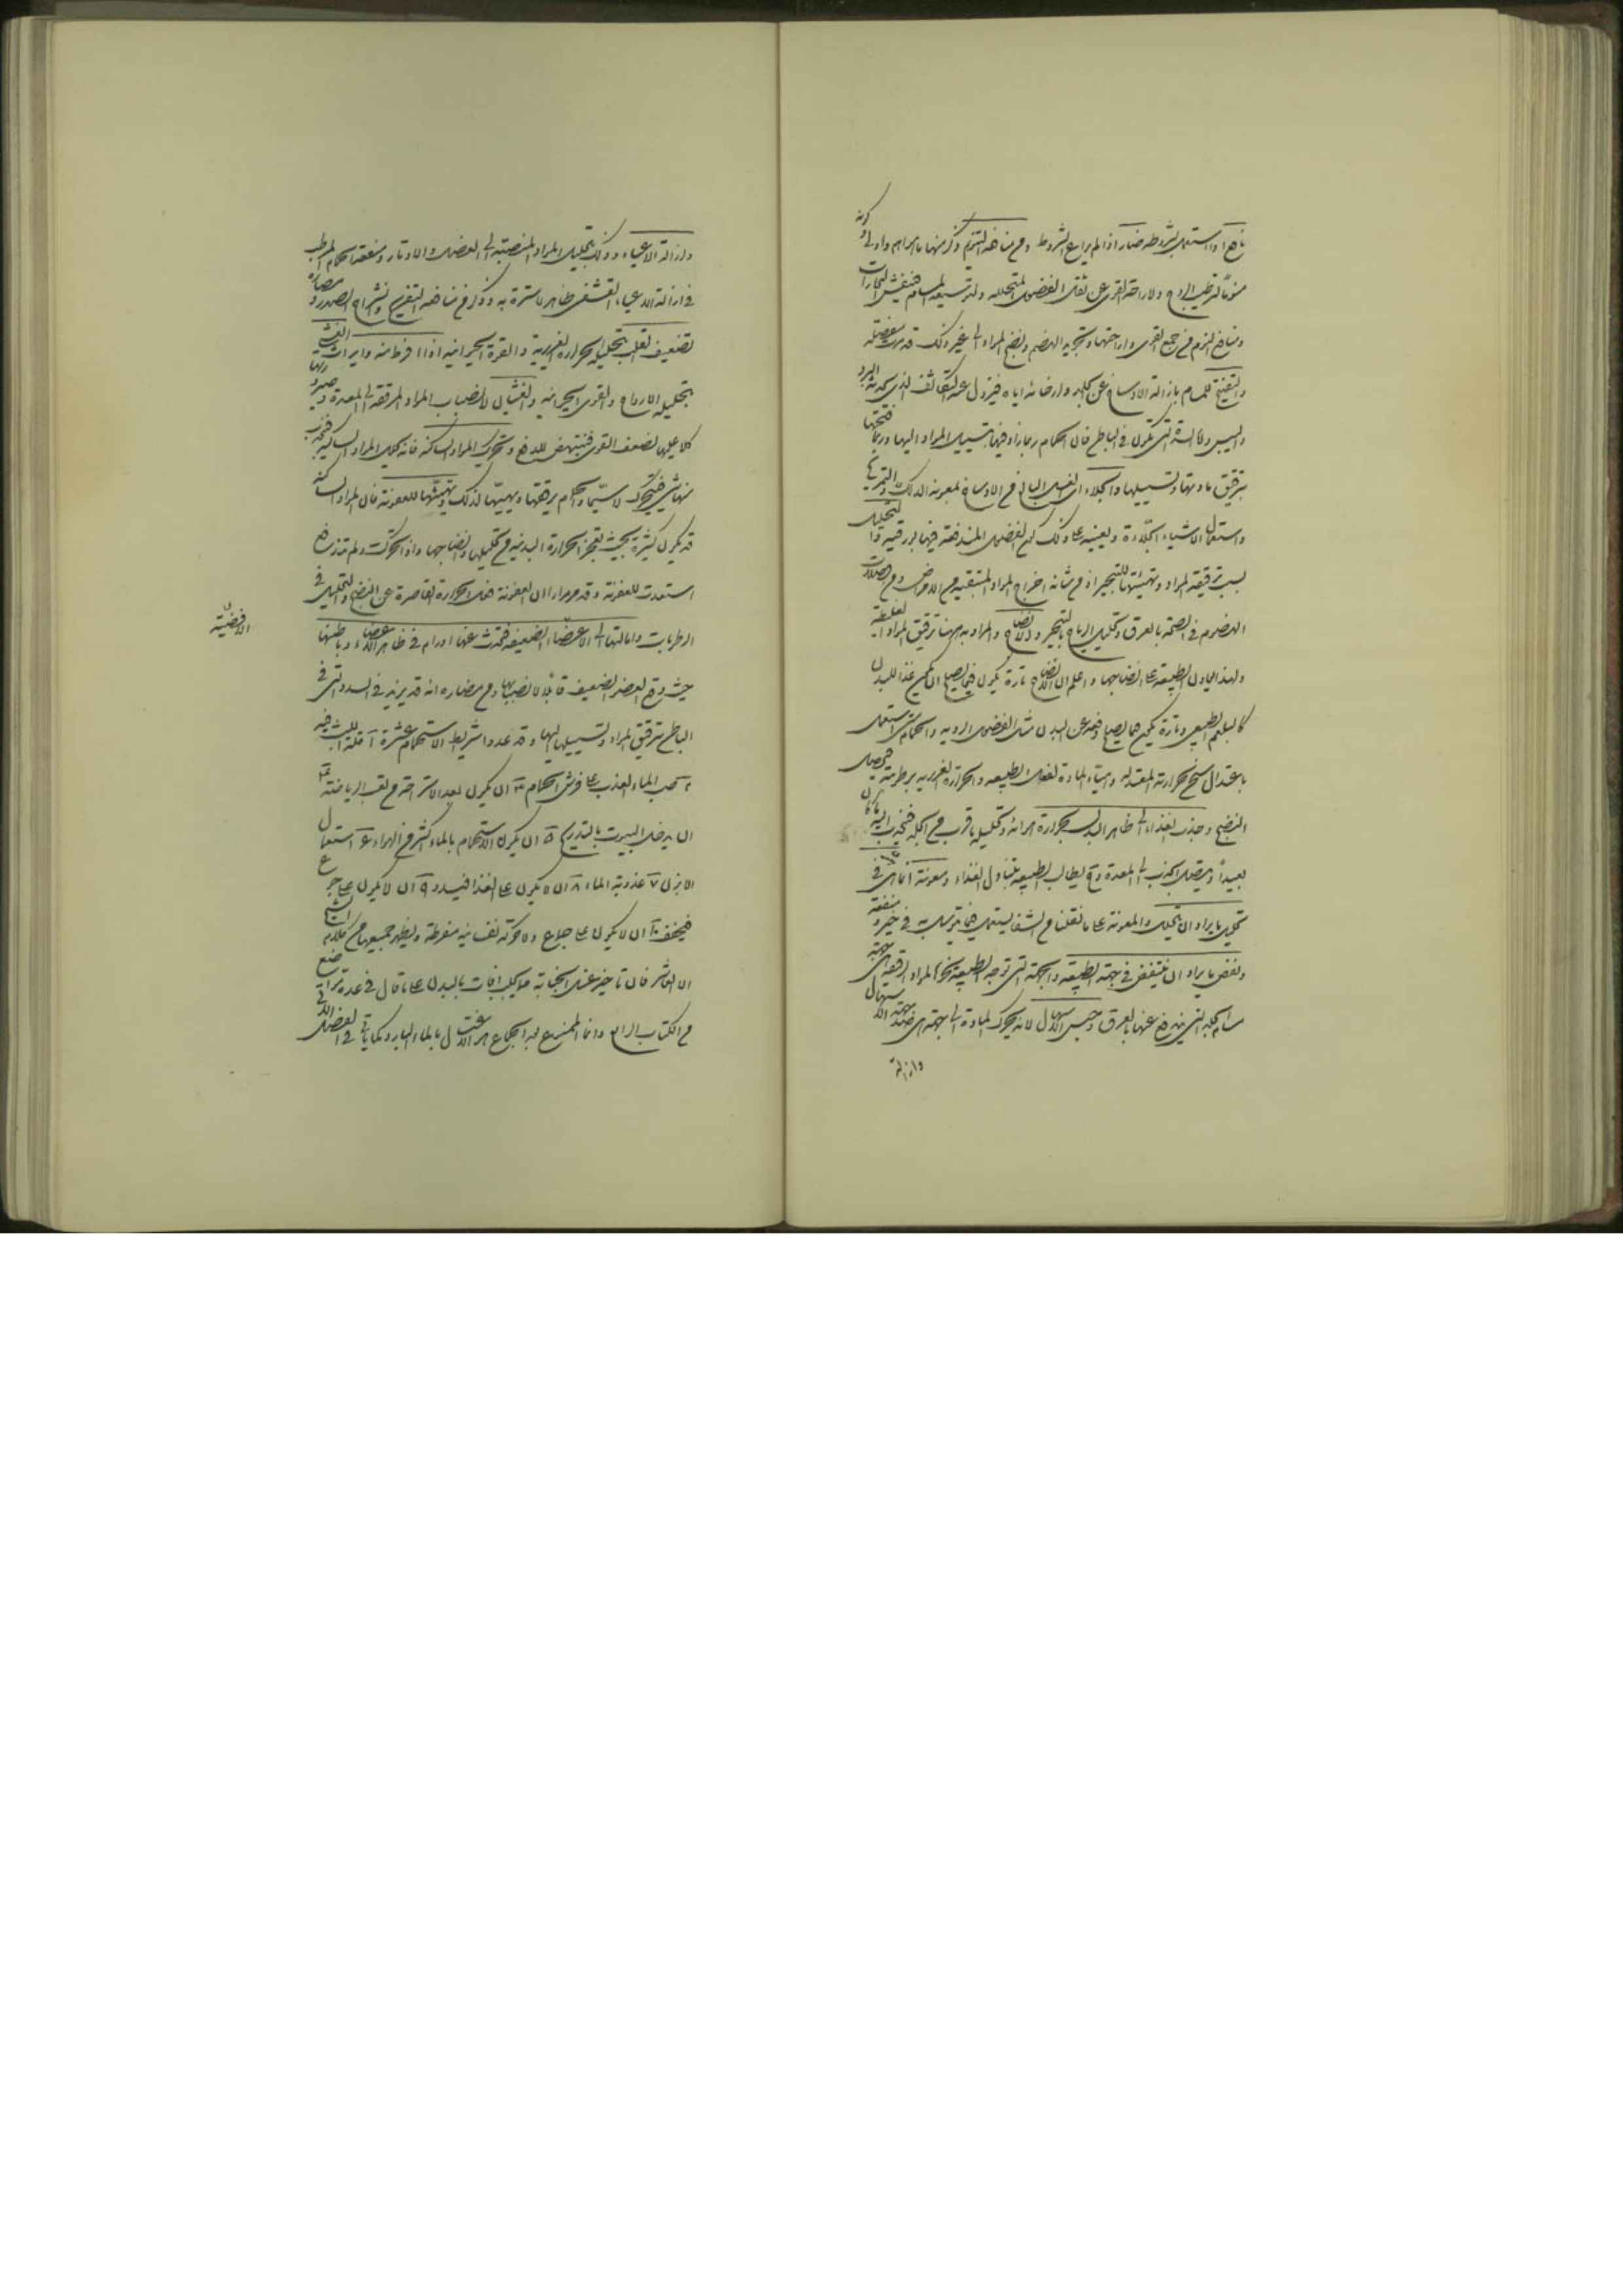 نافع اذا استعمل بشروطه ضار اذا لم يراع الشروط ومن منافعه التنويم وذكر منها ما هو اولى كونه
منوما لترطيب الارواح ولاراحة القوى عن ثقل الفضول المتحللة ولتوسيع المسام فتنفش البخارات
ومنافع النوم من جمع القوى واراحتها وتجويد الهضم ونضج المواد الى غير ذلك قد مرت مفصلة
والتفتيح للمسام بازالة الاوساخ عن الجلد وارخائه اياه فيزول عنه التكاثف الذي يحدثه البرد
واليبس ولا السدة التي تكون في الباطن فان الحمام ربما زاد فيها بتسييل المواد اليها وربما فتحها
بترقيق مادتها وتسييلها والجلاء اي الغسل البالغ من الاوساخ بمعونة الدلك والتمريخ
واستعمال الاشياء الجلاءة ويعينه على ذلك الفضول المندفعة فيها بورقية والتحليل
بسبب ترقيقه المواد وتهيئتها للتبخير اذ من شانه اخراج المواد المتبقية من الامراض ومن فضلات
الهضوم في الصحة بالعرق وتحليل الرياح بالتبخير والانضاج والمراد به ههنا ترقيق المواد الغليظة
ولهذا يعاون الطبيعة على انضاجها واعلم ان الانضاج تارة يكون فيما يصلح ان يكون غذا للبدن
كالبلغم الطبيعي وتارة يكون فيما يصلح دفعه عن البدن مثل الفضول الردية والحمام متى استعمل
باعتدال سخن بحرارته المعتدلة وهيأ المادة لفعل الطبيعة والحرارة الغريزية برطوبته فيحصل
النضج وجذب الغذاء الى ظاهر البدن بحرارة هوائه وتحليله ما قرب من الجلد فينجذب اليه ما كان
بعيدا ويتصل الجذب الى المعدة وح يطالب الطبيعة بتناول الغذاء ومعونة انما هي في
تحليل ما يراد ان يتحلل والمعونة على ما نقلنا من الشفا يستعمل فيما يتوسل به في خير ومنفعة
ونفض ما يراد ان ينتفض في جهة الطبيعة والجهة التي توجه الطبيعة نحوها المواد الرقيقة هي جهة
مسام الجلد التي يندفع عنها بالعرق وحبس الاسهال لانه يحرك المادة الى جهة هي ضد جهة الاسهال
وازالة
وازالة الاعياء وذلك بتحليل المواد المنصبة الى العضل والاوتار ومنفعة الحمام الرطب
في ازالة الاعياء التقشفي ظاهر لا سترة به وذكر في منافعه التفريح وانشراح الصدور ومضاره
تضعيف القلب بتحليله الحرارة الغريزية والقوة الحيوانية اذا افرط منه وايراث الغشي
بتحليله الارواح والقوى الحيوانية والغشيان لانصباب المواد المرققة الى المعدة وصيرورتها
كلا عليها لضعف القوى فتنتهض للدفع وتحريك المواد الساكنة فانه يحلل المواد السايلة فينجذب
منها شي فيتحرك لا سيما والحمام يرققها ويهيئها لذلك وتهيئتها للعفونة فان المواد الساكنة
قد تكون كثيرة بحيث تعجز الحرارة البدنية من تحليلها وانضاجها واذا تحركت ولم تندفع
استعدت للعفونة وقد مر مرارا ان العفونة فعل الحرارة القاصرة عن النضج والتحليل في
الرطوبات وامالتها الى الاعضاء الضعيفة فتحدث عنها اورام في ظاهر الاعضاء وباطنها
حيث وقع العضو الضعيف قابلا لانصبابها ومن مضاره انه قد يزيد في السدد التي في
الباطن بترقيق المواد وتسييلها اليها وقد عدوا شرايط الاستحمام عشرة ا قلة اللبث فيه
ب صب الماء العذب على فرش الحمام ج ان يكون بعد الاستراحة من تعب الرياضة د
ان يدخل البيوت بالتدريج ه ان يكون الاستحمام بالماء اكثر من الهواء و استعمال
الابزن ٧ عذوبة الماء ٨ ان لا يكون على الغذا فيسدد ٩ ان لا يكون على جوع
فيجفف ١٠ ان لا يكون على جماع ولا حركة نفسانية مفرطة ويظهر جميعها من كلام الشيخ
الا العاشر فان تاخير غسل الجنابة مما يجلب افات بالبدن على ما قال في عدة مواضع
من الكتاب الرابع وانما الممنوع بعد الجماع هو الاغتسال بالماء البارد كما ياتي في الفصل الذ
الافضية